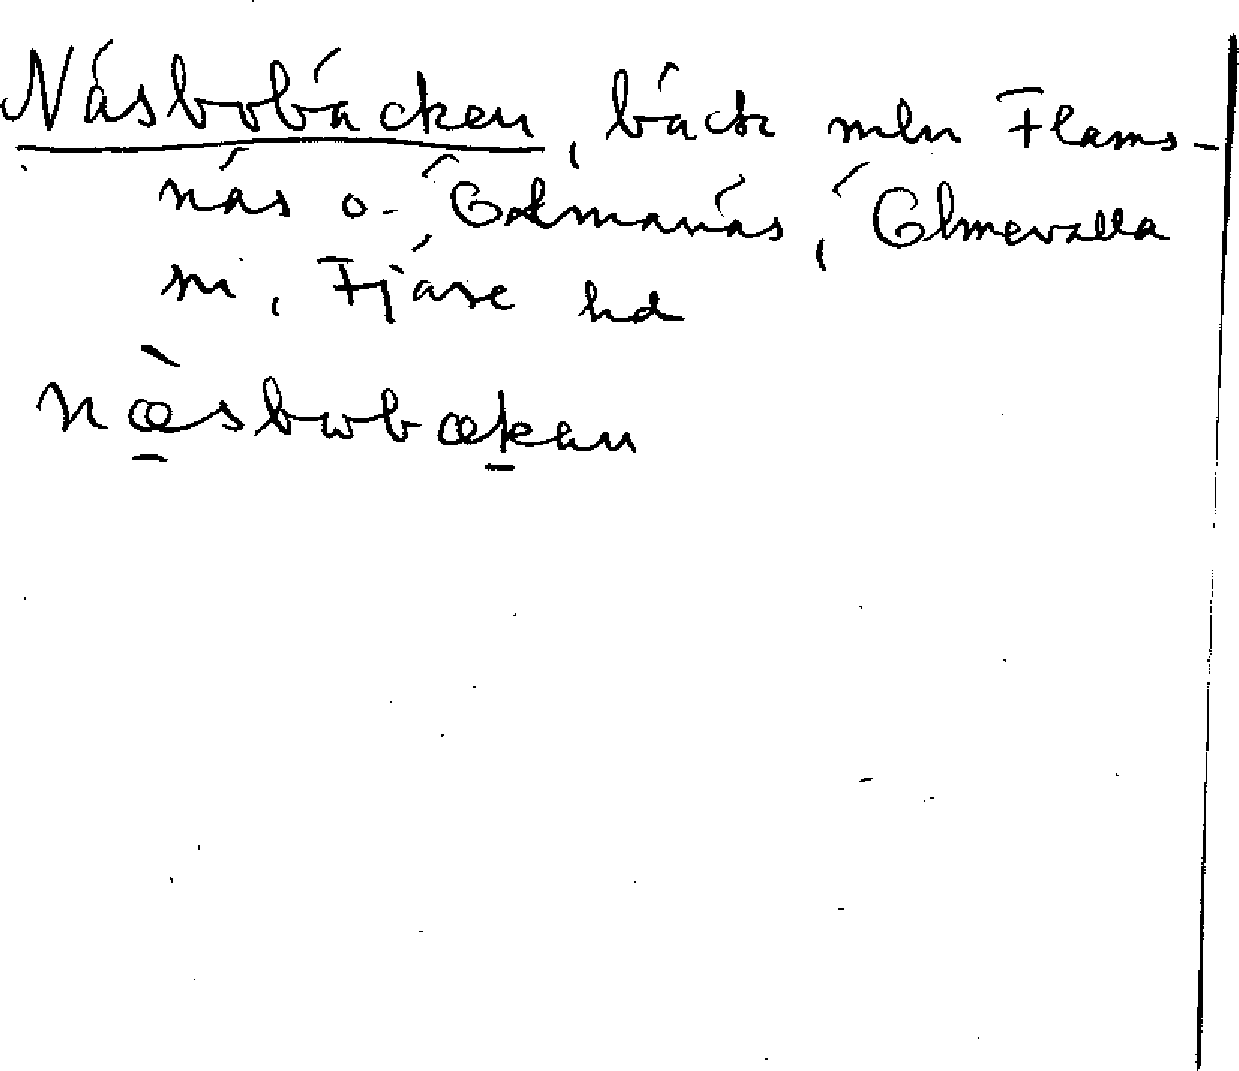 Näsbobäcken, bäck mln Flams-
näs o. Ölmanäs, Ölmevalla
sn, Fjäre hd
nœ̀sbωbœkan